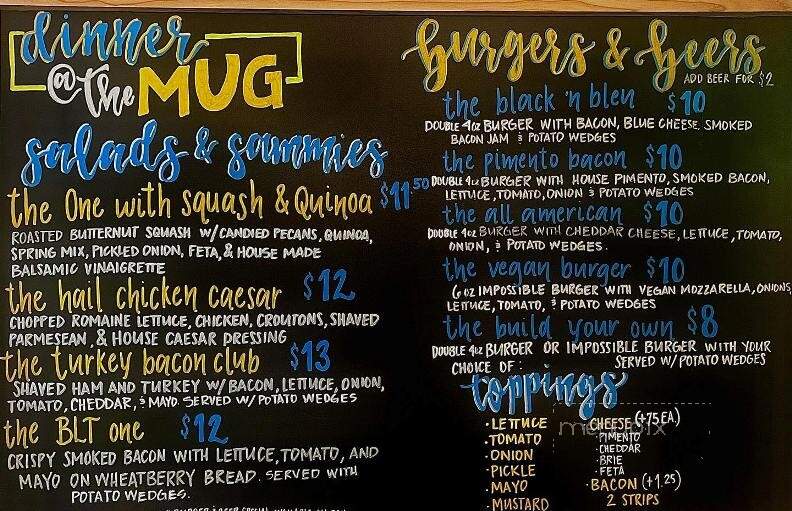 dinner
@ the MUG
salads & sammies
the One with squash & Quinoa $11.50
ROASTED BUTTERNUT SQUASH W/CANDIED PECANS, QUINOA,
SPRING MIX, PICKLED ONION, FETA, & HOUSE MADE
BALSAMIC VINAIGRETTE
the hail chicken caesar $12
CHOPPED ROMAINE LETTUCE, CHICKEN, CROUTONS, SHAVED
PARMESEAN, & HOUSE CAESAR DRESSING
the turkey bacon club $13
SHAVED HAM AND TURKEY W/ BACON, LETTUCE, ONION,
TOMATO, CHEDDAR, & MAYO. SERVED W/ POTATO WEDGES
the BLT one $12
CRISPY SMOKED BACON WITH LETTUCE, TOMATO, AND
MAYO ON WHEATBERRY BREAD. SERVED WITH
POTATO WEDGES.
burgers & beers
ADD BEER FOR $2
the black 'n bleu $10
DOUBLE 4oz BURGER WITH BACON, BLUE CHEESE, SMOKED
BACON JAM & POTATO WEDGES
the pimento bacon $10
DOUBLE 4oz BURGER WITH HOUSE PIMENTO, SMOKED BACON,
LETTUCE, TOMATO, ONION & POTATO WEDGES
the all american $10
DOUBLE 4oz BURGER WITH CHEDDAR CHEESE, LETTUCE, TOMATO,
ONION, & POTATO WEDGES.
the vegan burger $10
6oz IMPOSSIBLE BURGER WITH VEGAN MOZZARELLA, ONIONS,
LETTUCE, TOMATO, & POTATO WEDGES
the build your own $8
DOUBLE 4oz BURGER OR IMPOSSIBLE BURGER WITH YOUR
CHOICE OF: SERVED W/ POTATO WEDGES
toppings
· LETTUCE
· TOMATO
· ONION
· PICKLE
· MAYO
· MUSTARD
· CHEESE (+.75 EA)
· PIMENTO
· CHEDDAR
· BRIE
· FETA
· BACON (+1.25)
2 STRIPS